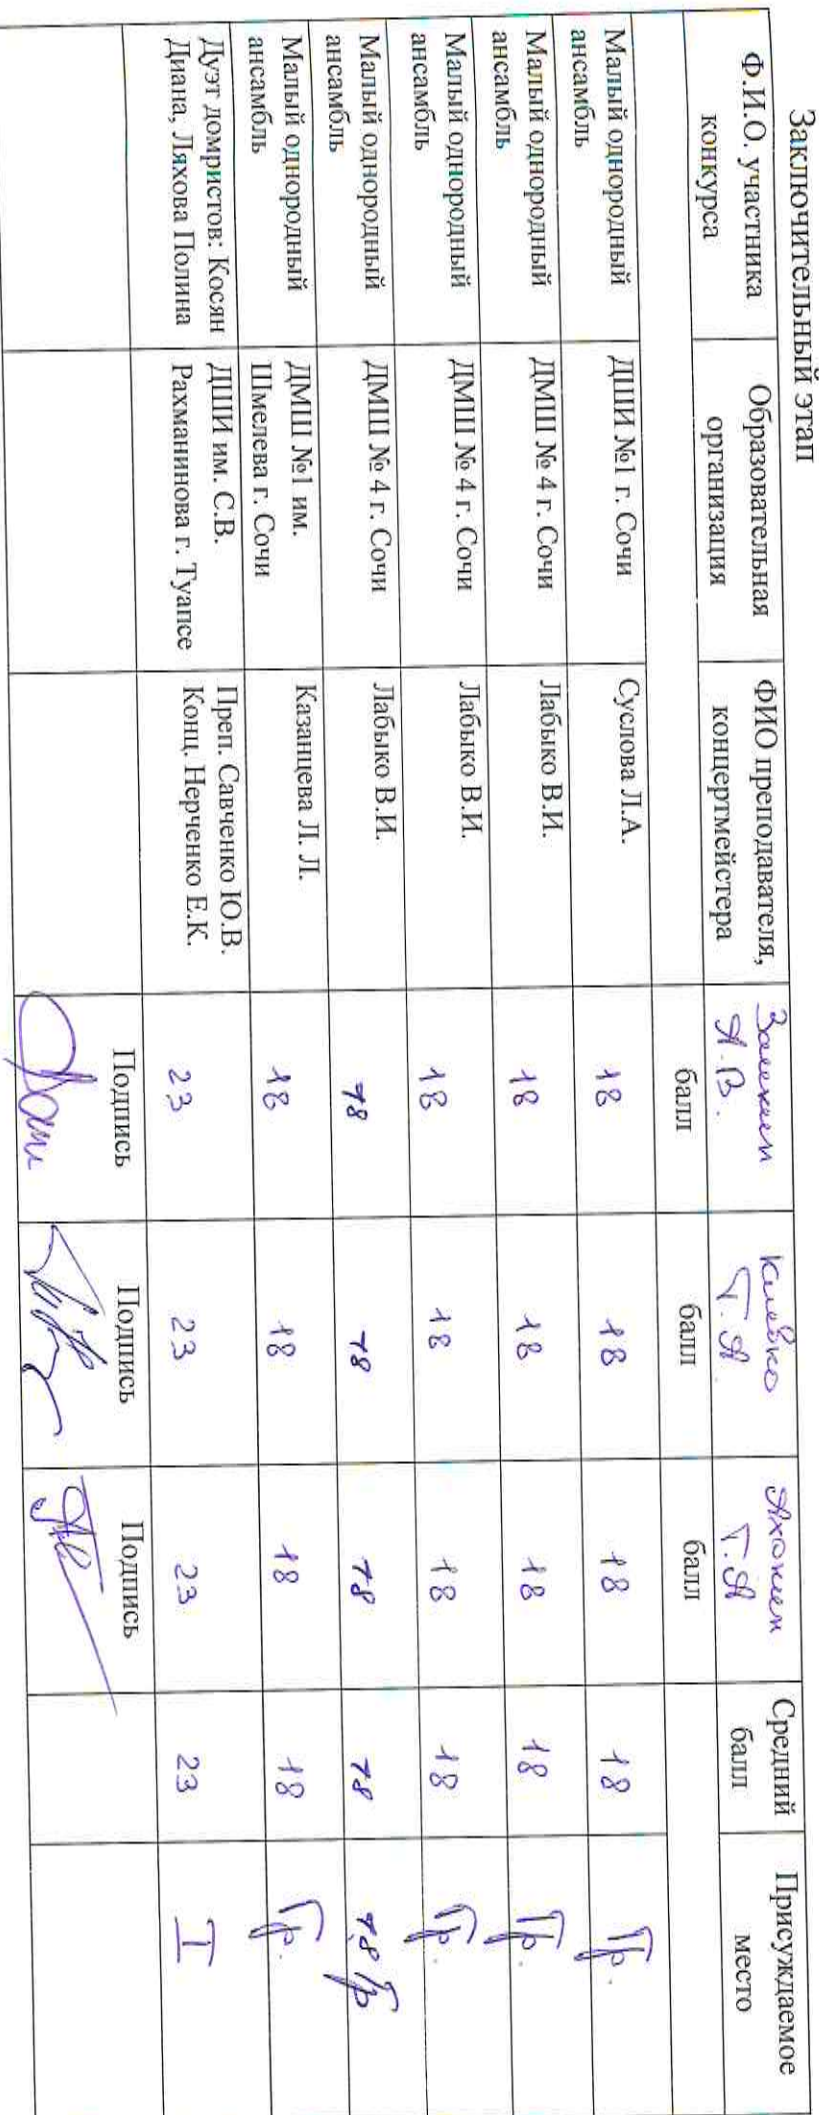 Заключительный этап
Ф.И.О. участника конкурса Образовательная организация ФИО преподавателя, концертмейстера А.В. Т.А. Т.А Средний балл Присуждаемое место
балл балл балл
Малый однородный ансамбль ДШИ №1 г. Сочи Суслова Л.А. 18 18 18 18 Гр.
Малый однородный ансамбль ДМШ № 4 г. Сочи Лабыко В.И. 18 18 18 18 Гр.
Малый однородный ансамбль ДМШ № 4 г. Сочи Лабыко В.И. 18 18 18 18 Гр.
Малый однородный ансамбль ДМШ № 4 г. Сочи Лабыко В.И. 18 18 18 18 18 Гр
Малый однородный ансамбль ДМШ №1 им. Шмелева г. Сочи Казанцева Л. Л. 18 18 18 18 Гр.
Дуэт домристов: Косян Диана, Ляхова Полина ДШИ им. С.В. Рахманинова г. Туапсе Преп. Савченко Ю.В. Конц. Нерченко Е.К. 23 23 23 23 I
Подпись Подпись Подпись